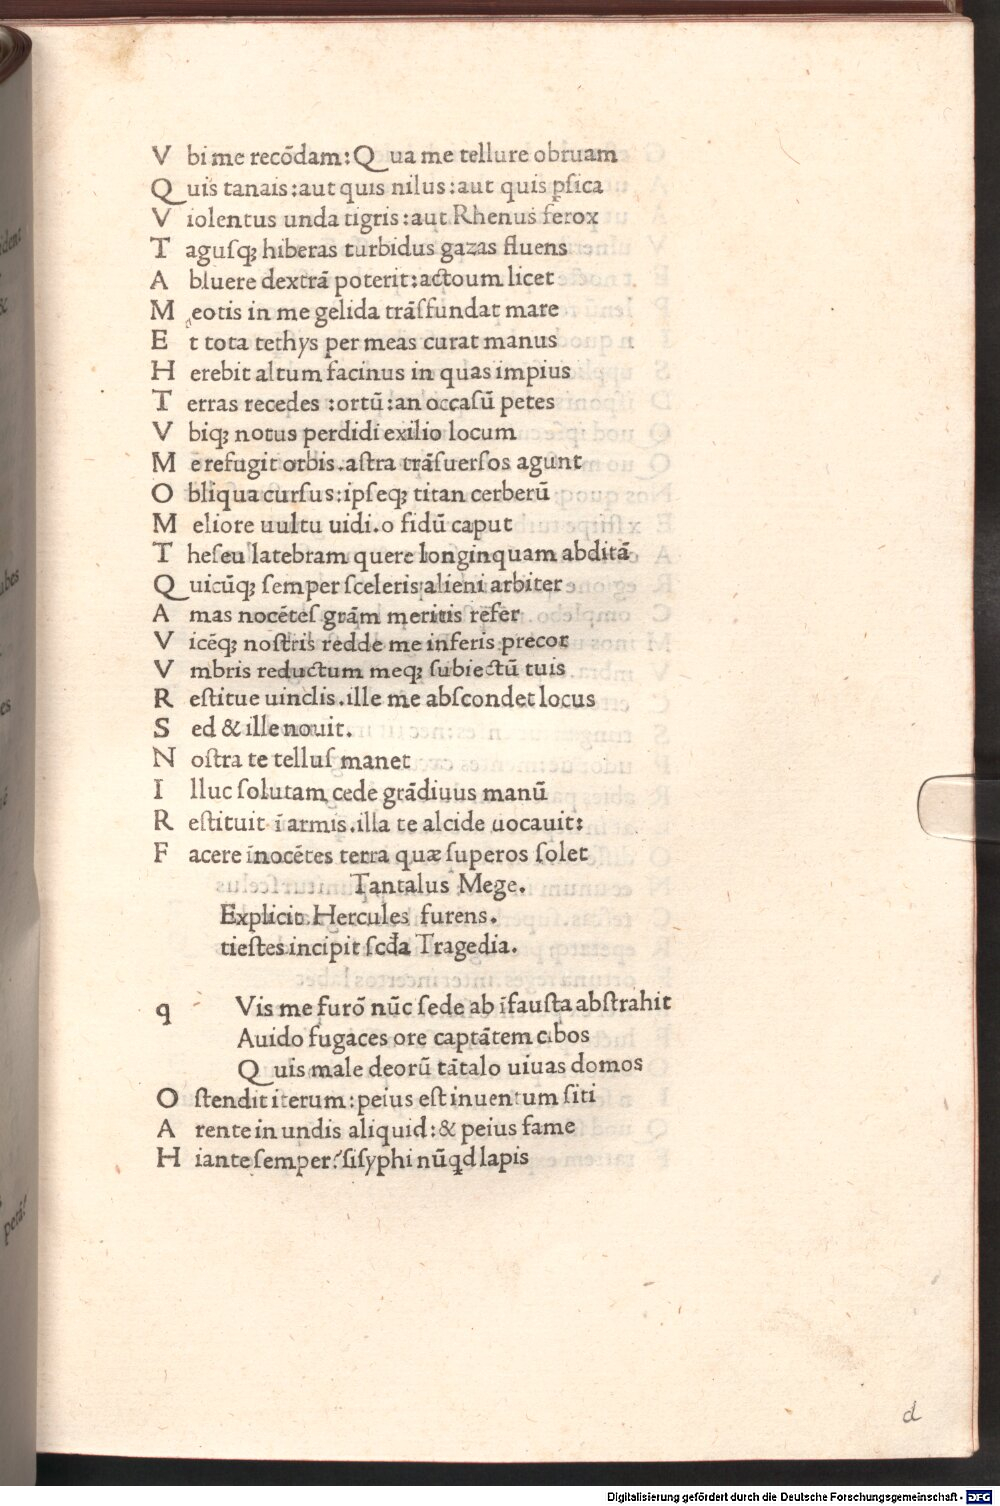 V bi me recōdam: Q ua me tellure obruam
Q uis tanais: aut quis nilus: aut quis pſica
V iolentus unda tigris: aut Rhenus ferox
T aguſqꝫ hiberas turbidus gazas fluens
A bluere dextrā poterit: actoum licet
M eotis in me gelida trāſfundat mare
E t tota tethys per meas curat manus
H erebit altum facinus in quas impius
T erras recedes: ortū: an occaſū petes
V biqꝫ notus perdidi exilio locum
M e refugit orbis. aſtra trāſuerſos agunt
O bliqua curſus: ipſeqꝫ titan cerberū
M eliore uultu uidi. o fidū caput
T heſeu latebram quere longinquam abditā
Q uicūqꝫ ſemper ſceleris alieni arbiter
A mas nocēteſ grām meritis refer
V icēqꝫ noſtris redde me inferis precor
V mbris reductum meqꝫ ſubiectū tuis
R eſtitue uinclis. ille me abſcondet locus
S ed & ille nouit.
N oſtra te telluſ manet
I lluc ſolutam cede grādiuus manū
R eſtituit ī armis. illa te alcide uocauit:
F acere īnocētes terra quæ ſuperos ſolet
Tantalus Mege.
Explicit Hercules furens.
tieſtes incipit ſcđa Tragedia.
q Vis me furō nūc ſede ab īfauſta abſtrahit
Auido fugaces ore captātem cibos
Q uis male deorū tātalo uiuas domos
O ſtendit iterum: peius eſt inuentum ſiti
A rente in undis aliquid: & peius fame
H iante ſemper? ſiſyphi nūqd lapis
d
Digitalisierung gefördert durch die Deutsche Forschungsgemeinschaft - DFG